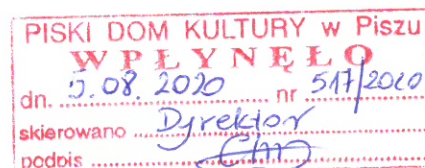 PISKI DOM KULTURY w Piszu
WPŁYNĘŁO
dn. 5.08.2020 nr 517/2020
skierowano Dyrektor
podpis